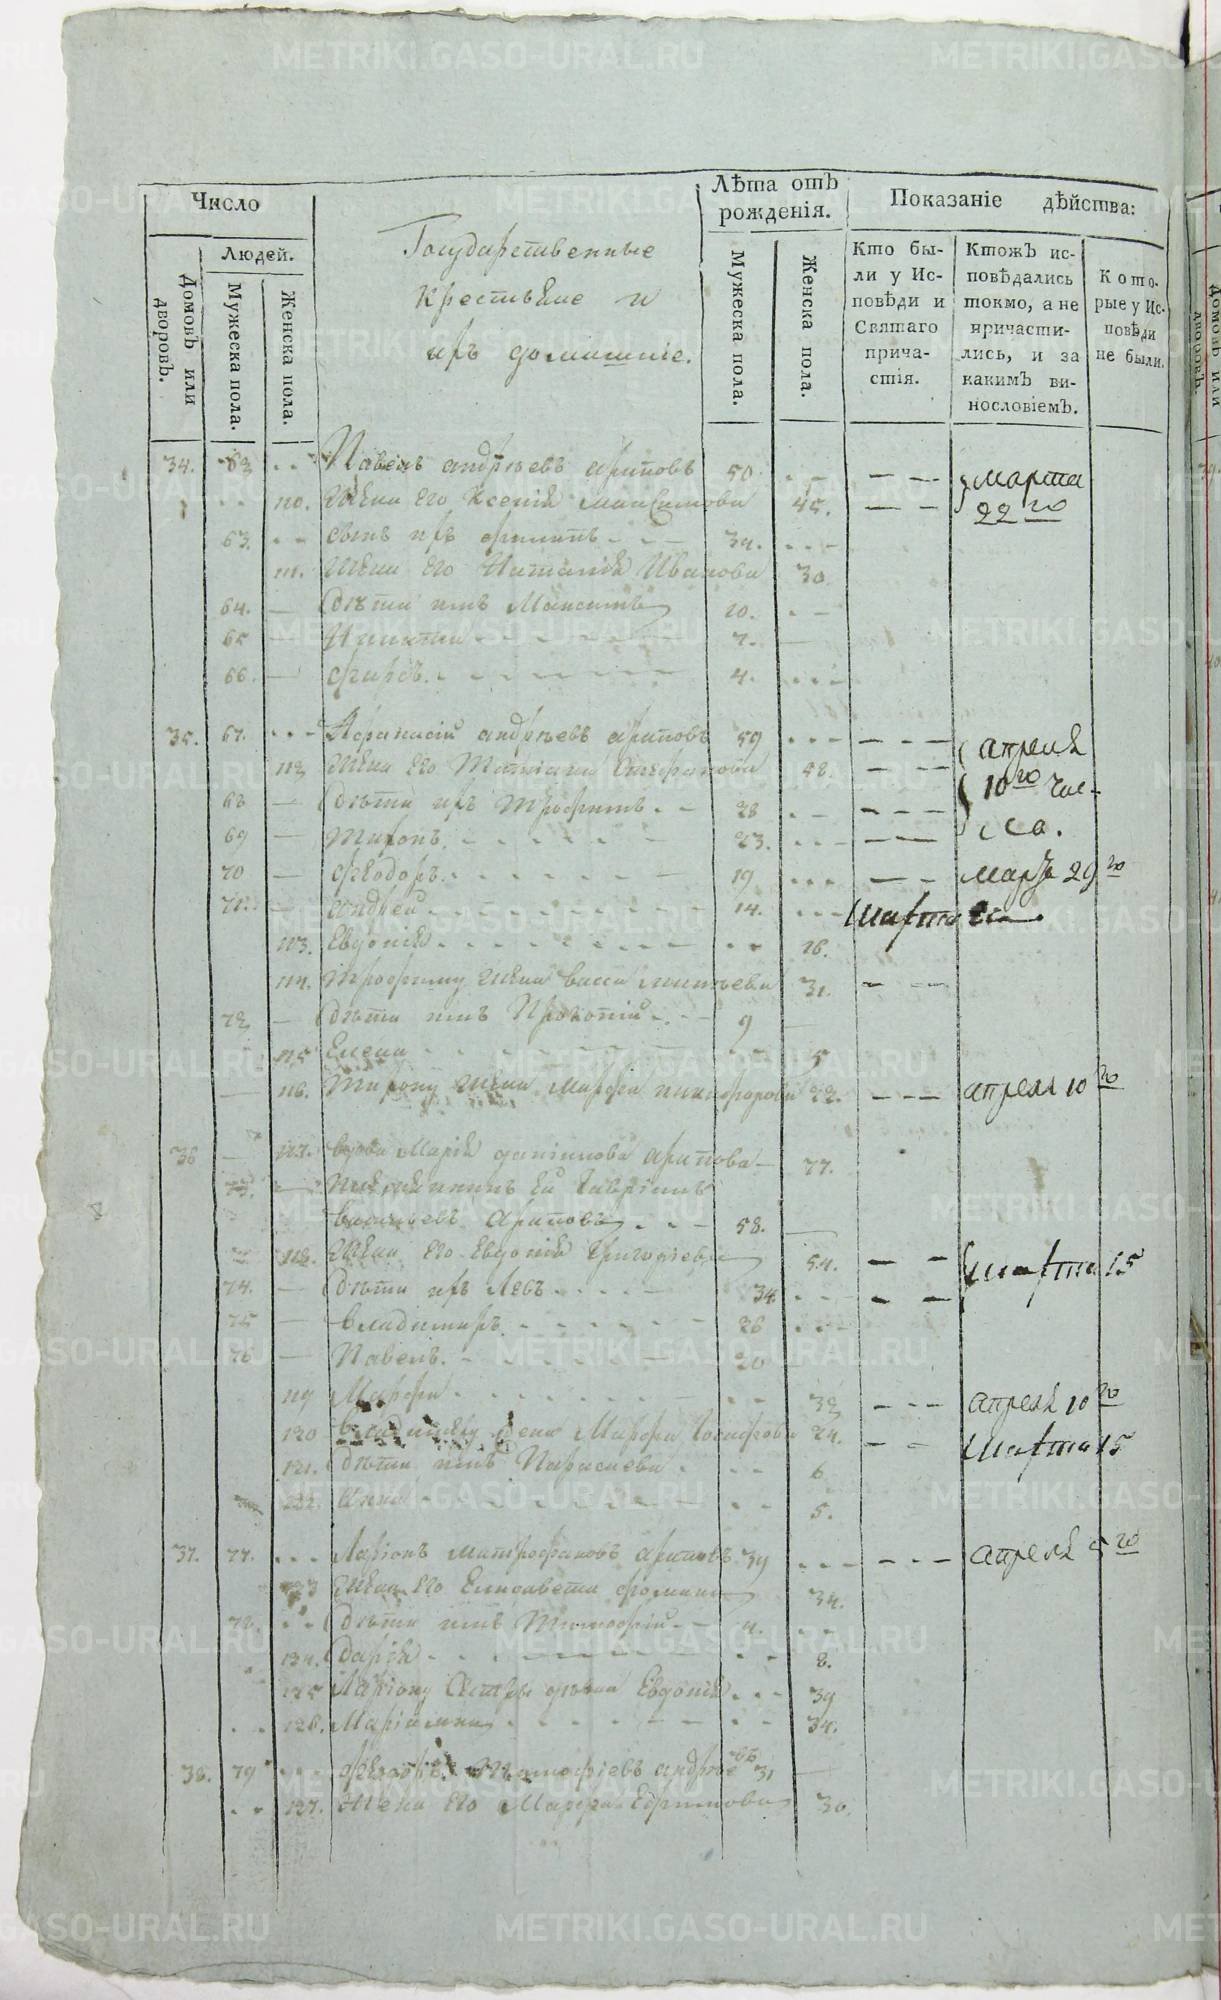 Число
Людей.
Домовъ или дворовъ.
Мужеска пола.
Женска пола.
Государственные
крестьяне и
ихъ домашніе.
Лѣта отъ рожденія.
Мужеска пола.
Женска пола.
Показаніе дѣйства:
Кто были у Исповѣди и Святаго причастія.
Ктожъ исповѣдались токмо, а не причастились, и за какимъ винословіемъ.
Которые у Исповѣди не были.
34. 62 Павелъ андреевъ ариповъ 50. марта
110. Жена его Ксенія Максимова 45. 22 го
63. сынъ ихъ филипъ 34.
111. Жена его Наталія Иванова 30.
64. Дѣти ихъ Максимъ 10.
65 Никита 7.
66. фирсъ. 4.
35. 67. Афанасій андреевъ ариповъ 59 апреля
112 Жена его Татіана Стефанова 58. 10 го
68 Дѣти ихъ Трофимъ 28
69 Миронъ. 23.
70 феодоръ. 19 марта 29 го
71. андрей 14.
113. Евдокія 16.
114. Трофиму жена васса 31.
72 Дѣти ихъ Прокопій 9
115 Елена 5
116. Мирону жена Марфа никифорова 22. апреля 10 го
36 117. вдова Марія данилова арипова 77.
73. племянникъ ея Гавріилъ
васильевъ ариповъ 58.
118. Жена его Евдокія Григоріева 54. марта 15
74. Дѣти ихъ Левъ 34.
75 владимиръ 26
76 Павелъ. 20
119 Марфа 32 апреля 10 го
120 владимиру жена Марфа 24. марта 15
121. Дѣти ихъ Парасковья 6
122. анна 5.
37. 77. Ларіонъ митрофановъ ариповъ 39 апреля 5 го
123 Жена его Елисавета фомина 34.
78. Дѣти ихъ Тимофѣй 4.
124. Дарія 8.
125 Ларіону Сестры Евдокія 39
126. Маріамна 34.
38. 79 Тимофѣевъ андреевъ 31
127. Жена его Марфа Ефимова 30.
METRIKI.GASO-URAL.RU